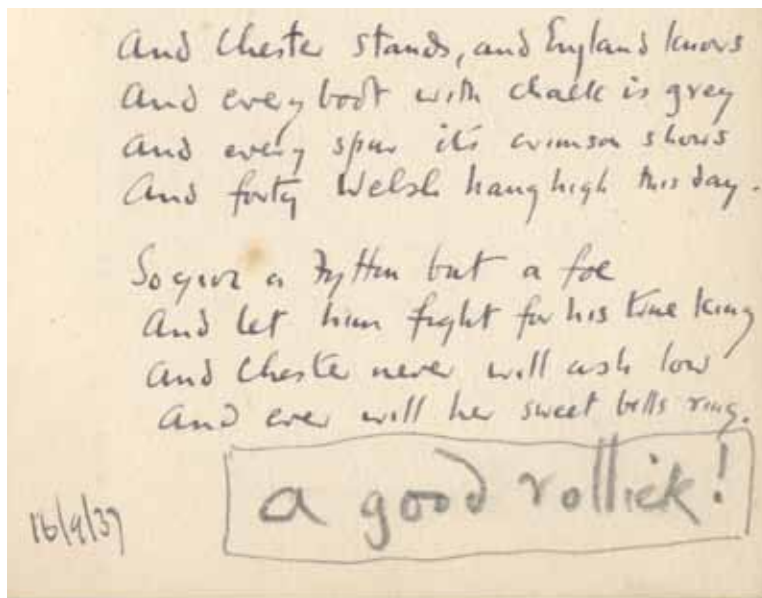 And Chester stands, and England knows
And every boot with chalk is grey
And every spur its crimson shows
And forty Welsh hang high this day.
So give a Fytton but a foe
And let him fight for his true king
And Chester never will ash low
And ever will her sweet bells ring.
a good rollick!
16/9/37